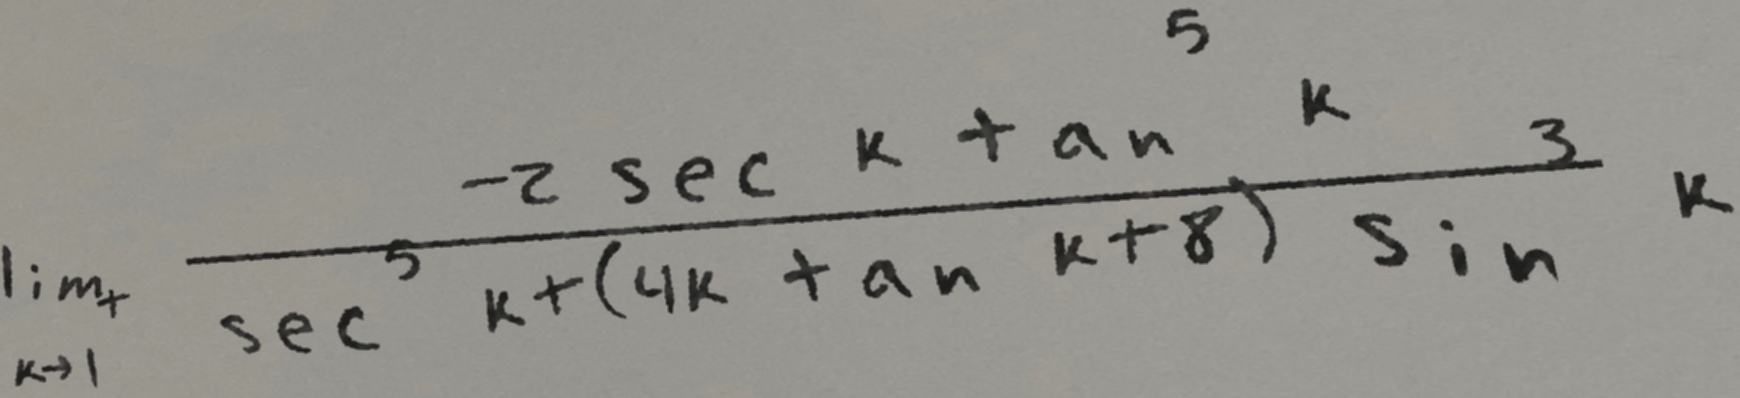 \lim_{k \to 1^+} \frac{-2 \sec k \tan^5 k}{\sec^5 k + (4k \tan k + 8) \sin^3 k}